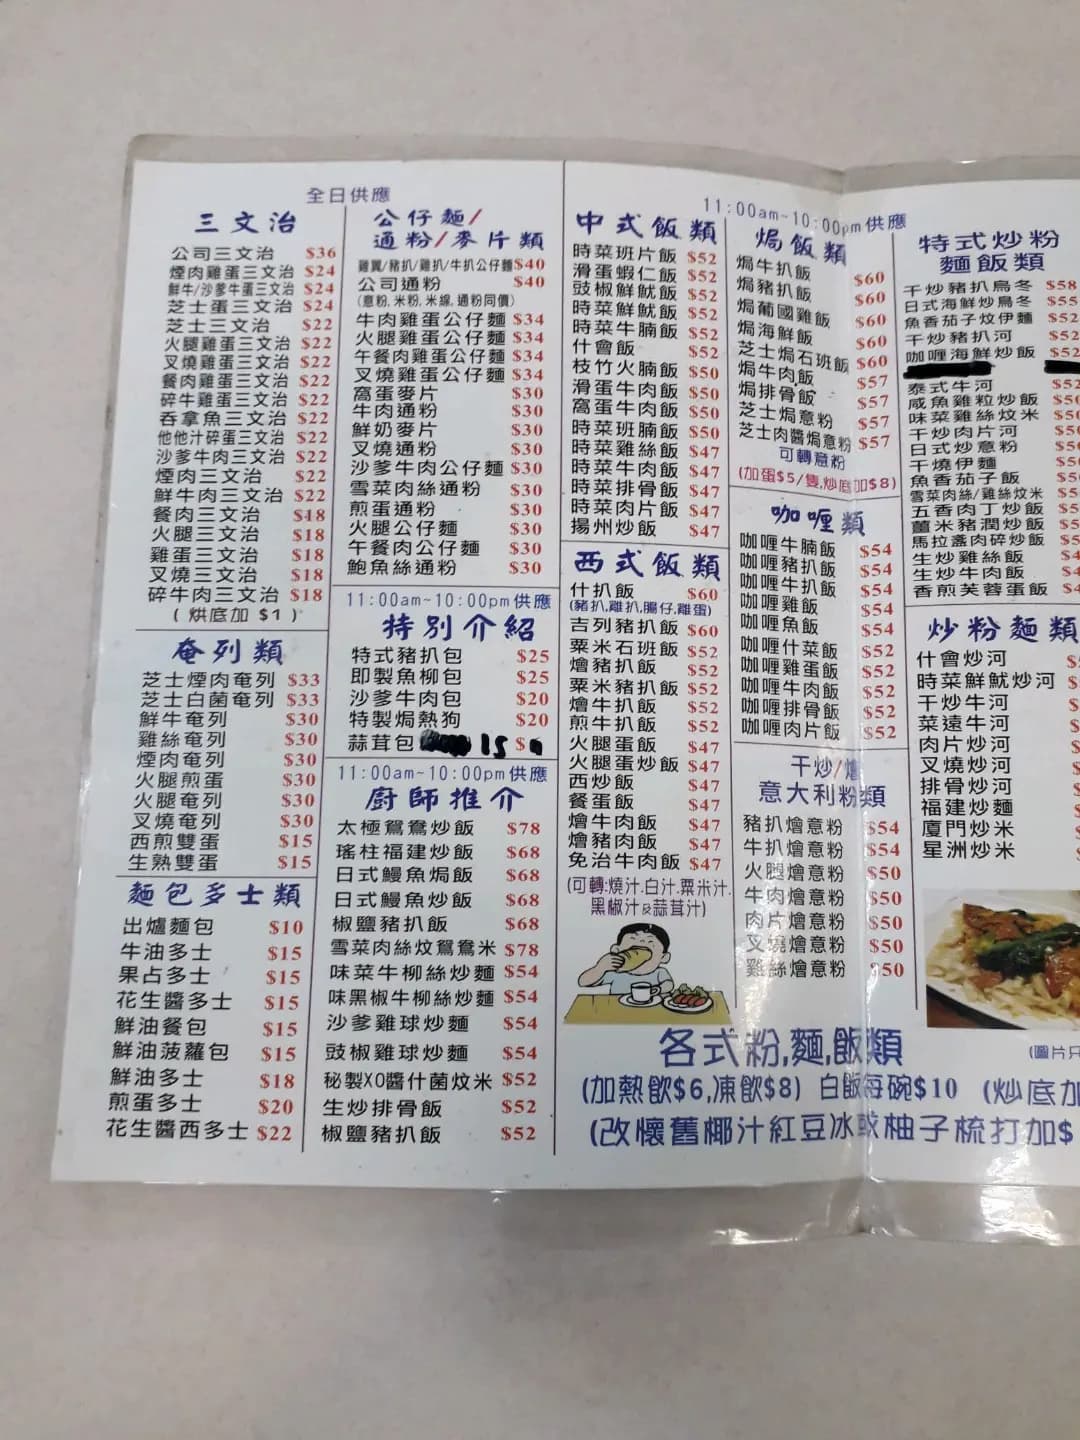 全日供應
三文治
公司三文治 $36
煙肉雞蛋三文治 $24
鮮牛/沙爹牛蛋三文治 $24
芝士蛋三文治 $24
芝士三文治 $22
火腿雞蛋三文治 $22
叉燒雞蛋三文治 $22
餐肉雞蛋三文治 $22
碎牛雞蛋三文治 $22
吞拿魚三文治 $22
他他汁碎蛋三文治 $22
沙爹牛肉三文治 $22
煙肉三文治 $22
鮮牛肉三文治 $22
餐肉三文治 $18
火腿三文治 $18
雞蛋三文治 $18
叉燒三文治 $18
碎牛肉三文治 $18
(烘底加 $1)
奄列類
芝士煙肉奄列 $33
芝士白菌奄列 $33
鮮牛奄列 $30
雞絲奄列 $30
煙肉奄列 $30
火腿煎蛋 $30
火腿奄列 $30
叉燒奄列 $30
西煎雙蛋 $15
生熟雙蛋 $15
麵包多士類
出爐麵包 $10
牛油多士 $15
果占多士 $15
花生醬多士 $15
鮮油餐包 $15
鮮油菠蘿包 $15
鮮油多士 $18
煎蛋多士 $20
花生醬西多士 $22
公仔麵/
通粉/麥片類
雞翼/豬扒/雞扒/牛扒公仔麵 $40
公司通粉 $40
(意粉,米粉,米線,通粉同價)
牛肉雞蛋公仔麵 $34
火腿雞蛋公仔麵 $34
午餐肉雞蛋公仔麵 $34
叉燒雞蛋公仔麵 $34
窩蛋麥片 $30
牛肉通粉 $30
鮮奶麥片 $30
叉燒通粉 $30
沙爹牛肉公仔麵 $30
雪菜肉絲通粉 $30
煎蛋通粉 $30
火腿公仔麵 $30
午餐肉公仔麵 $30
鮑魚絲通粉 $30
11:00am~10:00pm供應
特別介紹
特式豬扒包 $25
即製魚柳包 $25
沙爹牛肉包 $20
特製焗熱狗 $20
蒜茸包 15 $
11:00am~10:00pm供應
廚師推介
太極鴛鴦炒飯 $78
瑤柱福建炒飯 $68
日式鰻魚焗飯 $68
日式鰻魚炒飯 $68
椒鹽豬扒飯 $68
雪菜肉絲炆鴛鴦米 $78
味菜牛柳絲炒麵 $54
味黑椒牛柳絲炒麵 $54
沙爹雞球炒麵 $54
豉椒雞球炒麵 $54
秘製XO醬什菌炆米 $52
生炒排骨飯 $52
椒鹽豬扒飯 $52
11:00am~10:00pm供應
中式飯類
時菜班片飯 $52
滑蛋蝦仁飯 $52
豉椒鮮魷飯 $52
時菜鮮魷飯 $52
時菜牛腩飯 $52
什會飯 $52
枝竹火腩飯 $50
滑蛋牛肉飯 $50
窩蛋牛肉飯 $50
時菜班腩飯 $50
時菜雞絲飯 $47
時菜牛肉飯 $47
時菜排骨飯 $47
時菜肉片飯 $47
揚州炒飯 $47
西式飯類
什扒飯 $60
(豬扒,雞扒,腸仔,雞蛋)
吉列豬扒飯 $60
粟米石班飯 $52
燴豬扒飯 $52
粟米豬扒飯 $52
燴牛扒飯 $52
煎牛扒飯 $52
火腿蛋飯 $47
火腿蛋炒飯 $47
西炒飯 $47
餐蛋飯 $47
燴牛肉飯 $47
燴豬肉飯 $47
免治牛肉飯 $47
(可轉:燒汁.白汁.粟米汁.
黑椒汁及蒜茸汁)
焗飯類
焗牛扒飯 $60
焗豬扒飯 $60
焗葡國雞飯 $60
焗海鮮飯 $60
芝士焗石班飯 $60
焗牛肉飯 $57
焗排骨飯 $57
芝士焗意粉 $57
芝士肉醬焗意粉 $57
可轉意粉
(加蛋$5/隻,炒底加$8)
咖喱類
咖喱牛腩飯 $54
咖喱豬扒飯 $54
咖喱牛扒飯 $54
咖喱雞飯 $54
咖喱魚飯 $54
咖喱什菜飯 $52
咖喱雞蛋飯 $52
咖喱牛肉飯 $52
咖喱排骨飯 $52
咖喱肉片飯 $52
干炒/燴
意大利粉類
豬扒燴意粉 $54
牛扒燴意粉 $54
火腿燴意粉 $50
牛肉燴意粉 $50
肉片燴意粉 $50
叉燒燴意粉 $50
雞絲燴意粉 $50
特式炒粉
麵飯類
干炒豬扒烏冬 $58
日式海鮮炒烏冬 $55
魚香茄子炆伊麵 $52
干炒豬扒河 $52
咖喱海鮮炒飯 $52
泰式牛河 $52
咸魚雞粒炒飯 $50
味菜雞絲炆米 $50
干炒肉片河 $50
日式炒意粉 $50
干燒伊麵 $5
魚香茄子飯 $5
雪菜肉絲/雞絲炆米 $5
五香肉丁炒飯 $5
薑米豬潤炒飯 $5
馬拉盞肉碎炒飯 $5
生炒雞絲飯 $4
生炒牛肉飯 $4
香煎芙蓉蛋飯 $4
炒粉麵類
什會炒河 $
時菜鮮魷炒河 $
干炒牛河 $
菜遠牛河 $
肉片炒河 $
叉燒炒河 $
排骨炒河 $
福建炒麵 $
廈門炒米 $
星洲炒米 $
(圖片只
各式粉,麵,飯類
(加熱飲$6,凍飲$8) 白飯每碗$10 (炒底加
(改懷舊椰汁紅豆冰或柚子梳打加$